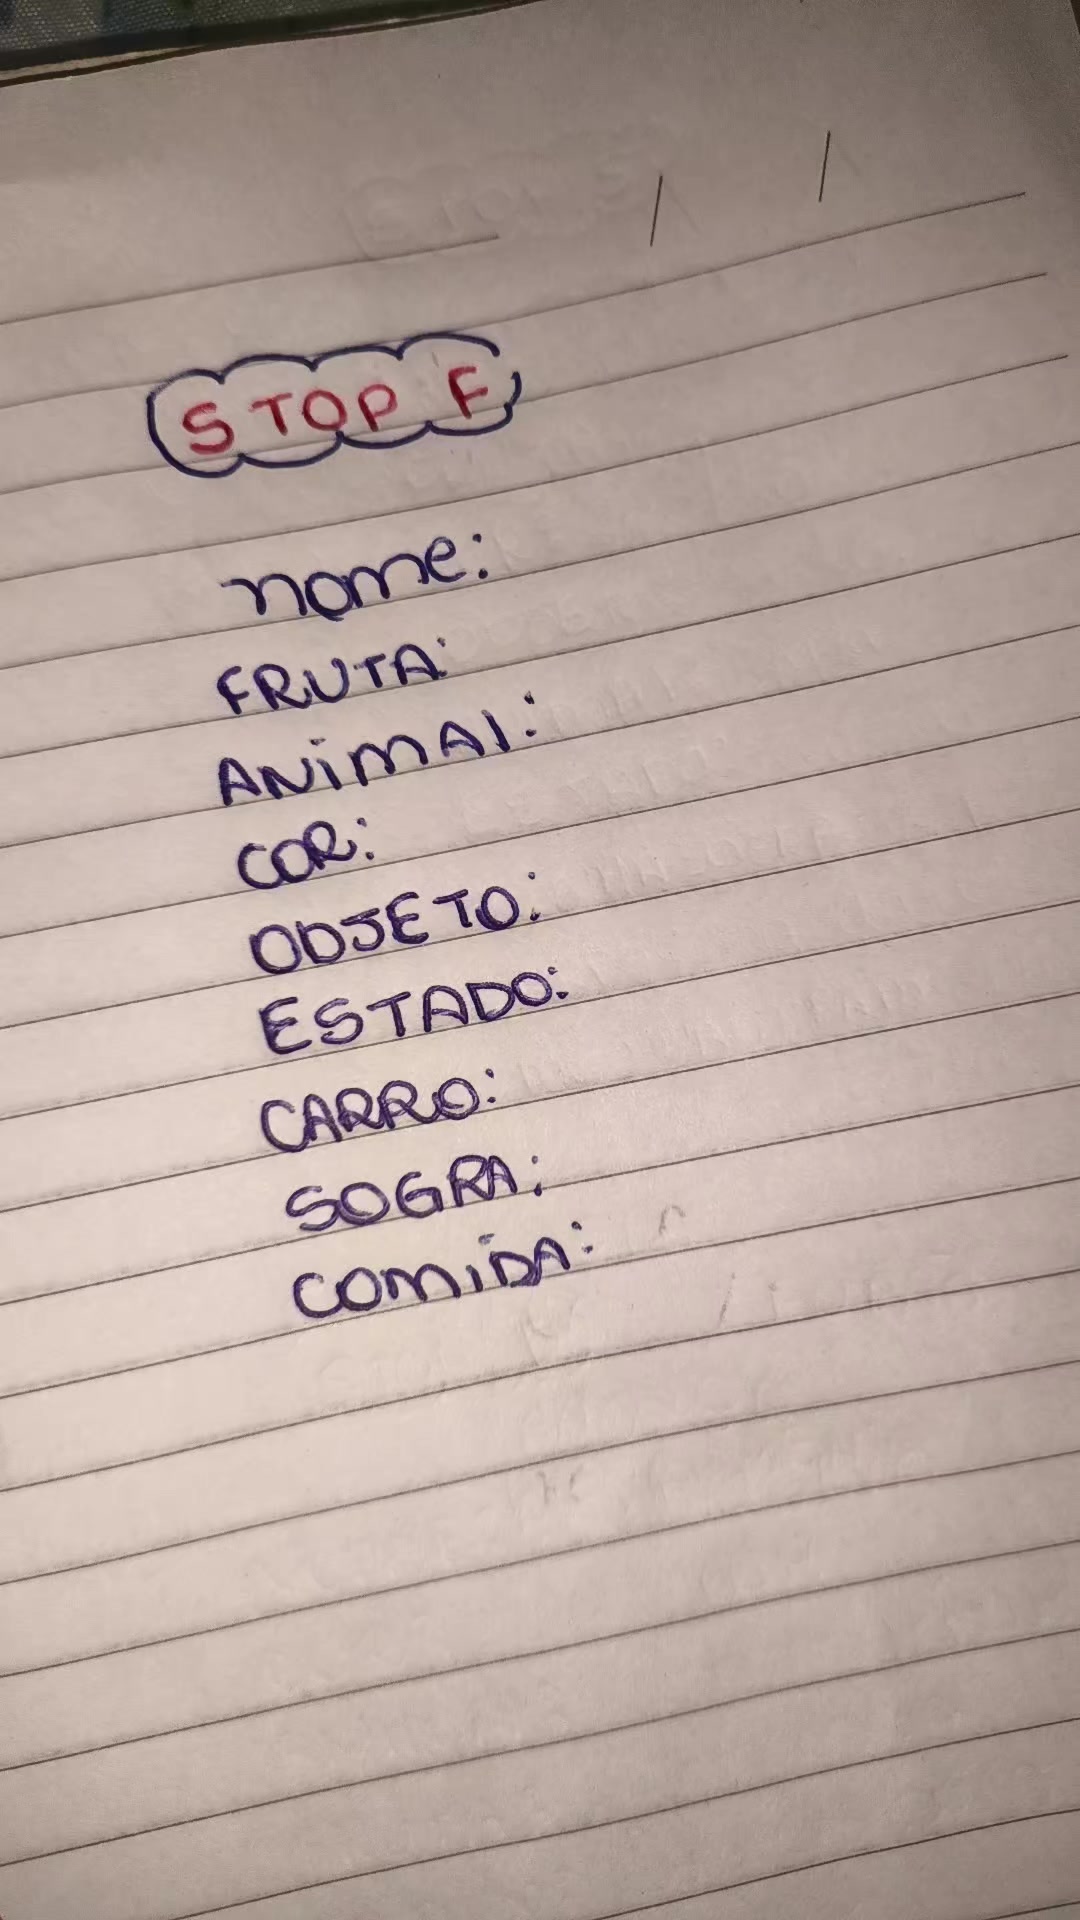 STOP F
nome:
FRUTA:
ANiMAl:
COR:
ODJETO:
ESTADO:
CARRO:
SOGRA:
COMiDA: